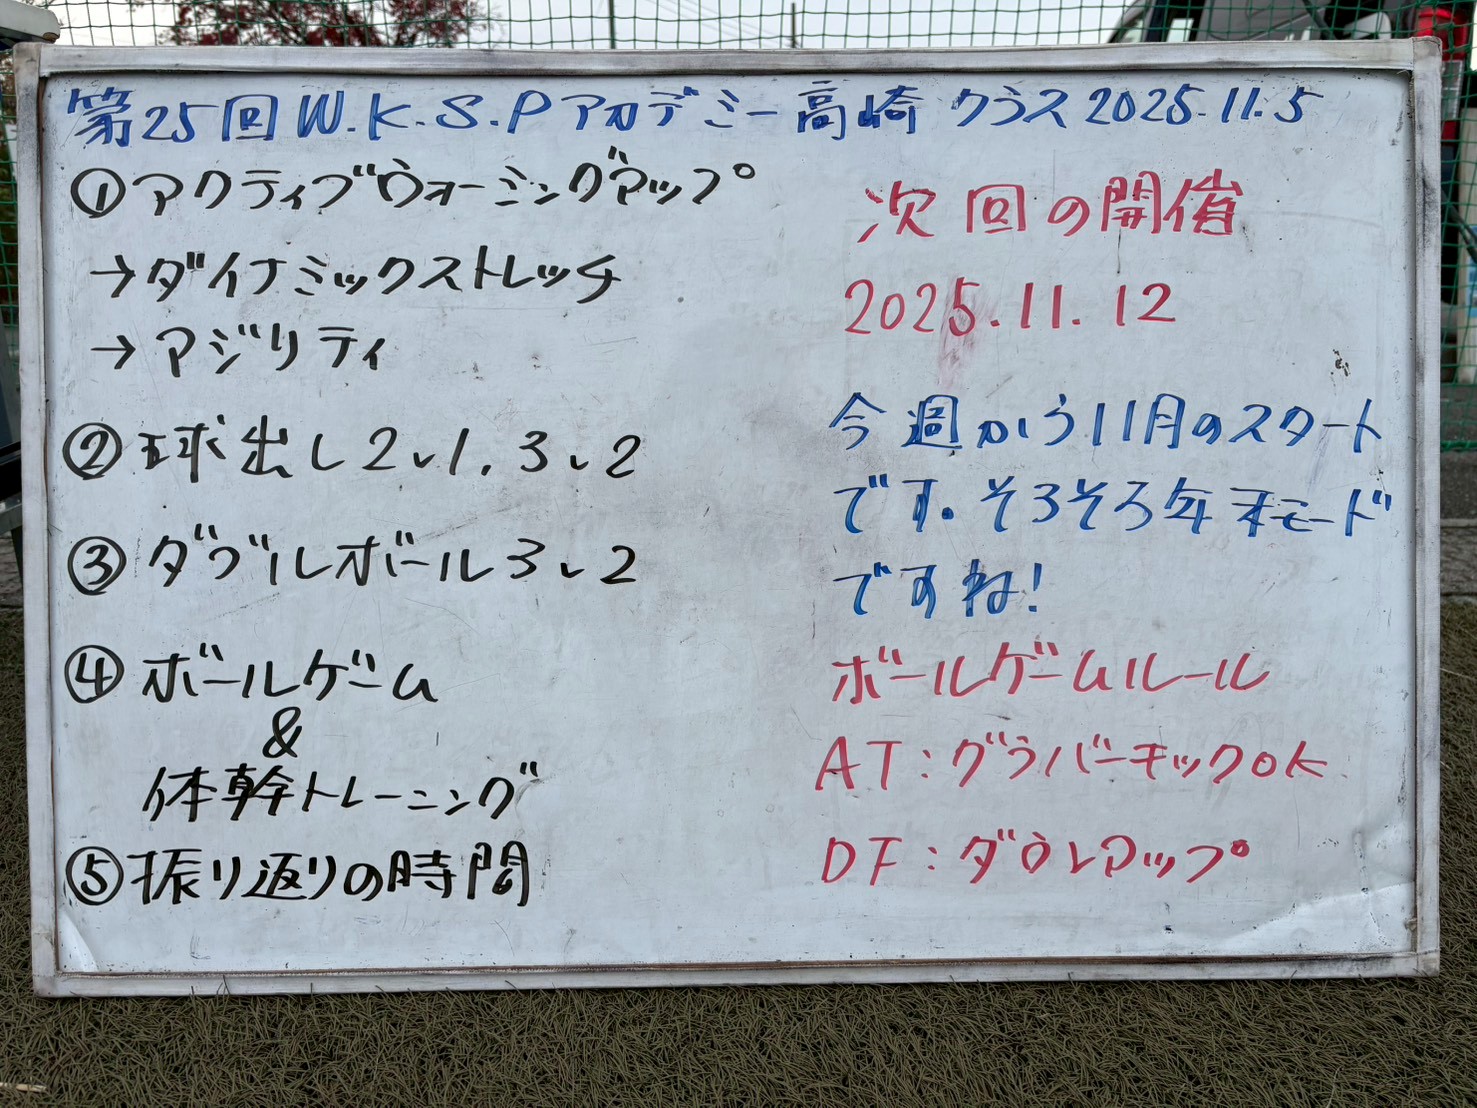 第25回W.K.S.Pアカデミー高崎クラス2025.11.5
①アクティブウォーミングアップ
→ダイナミックストレッチ
→アジリティ
②球出し2v1.3v2
③ダブルボール3v2
④ボールゲーム
&
体幹トレーニング
⑤振り返りの時間
次回の開催
2025.11.12
今週から11月のスタート
です。そろそろ年末モード
ですね!
ボールゲームルール
AT:グラバーキックOK
DF:ダウンアップ